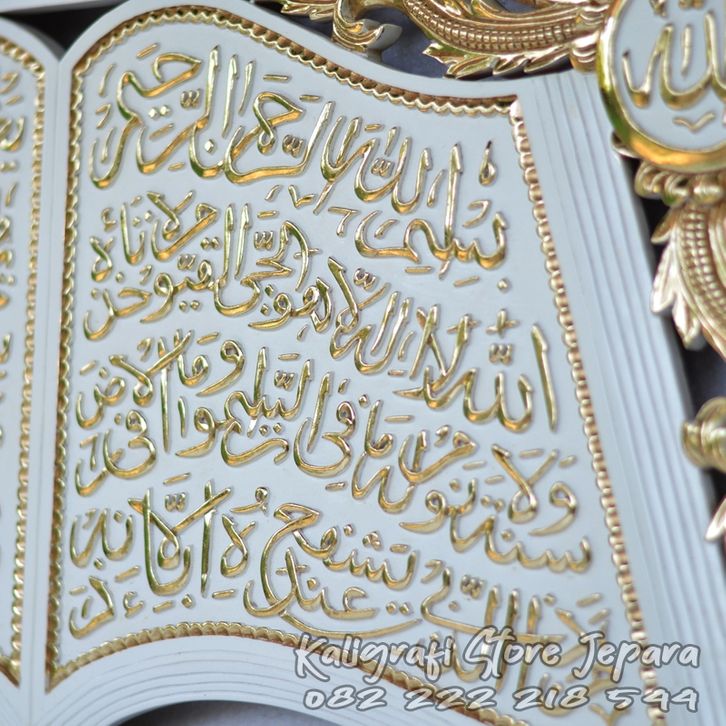 الله
بسم الله الرحمن الرحيم
الله لا إله إلا هو الحي القيوم لا تأخذه
سنة ولا نوم له ما في السموات وما في الأرض
من ذا الذي يشفع عنده إلا بإذنه
Kaligrafi Store Jepara
082 222 218 544